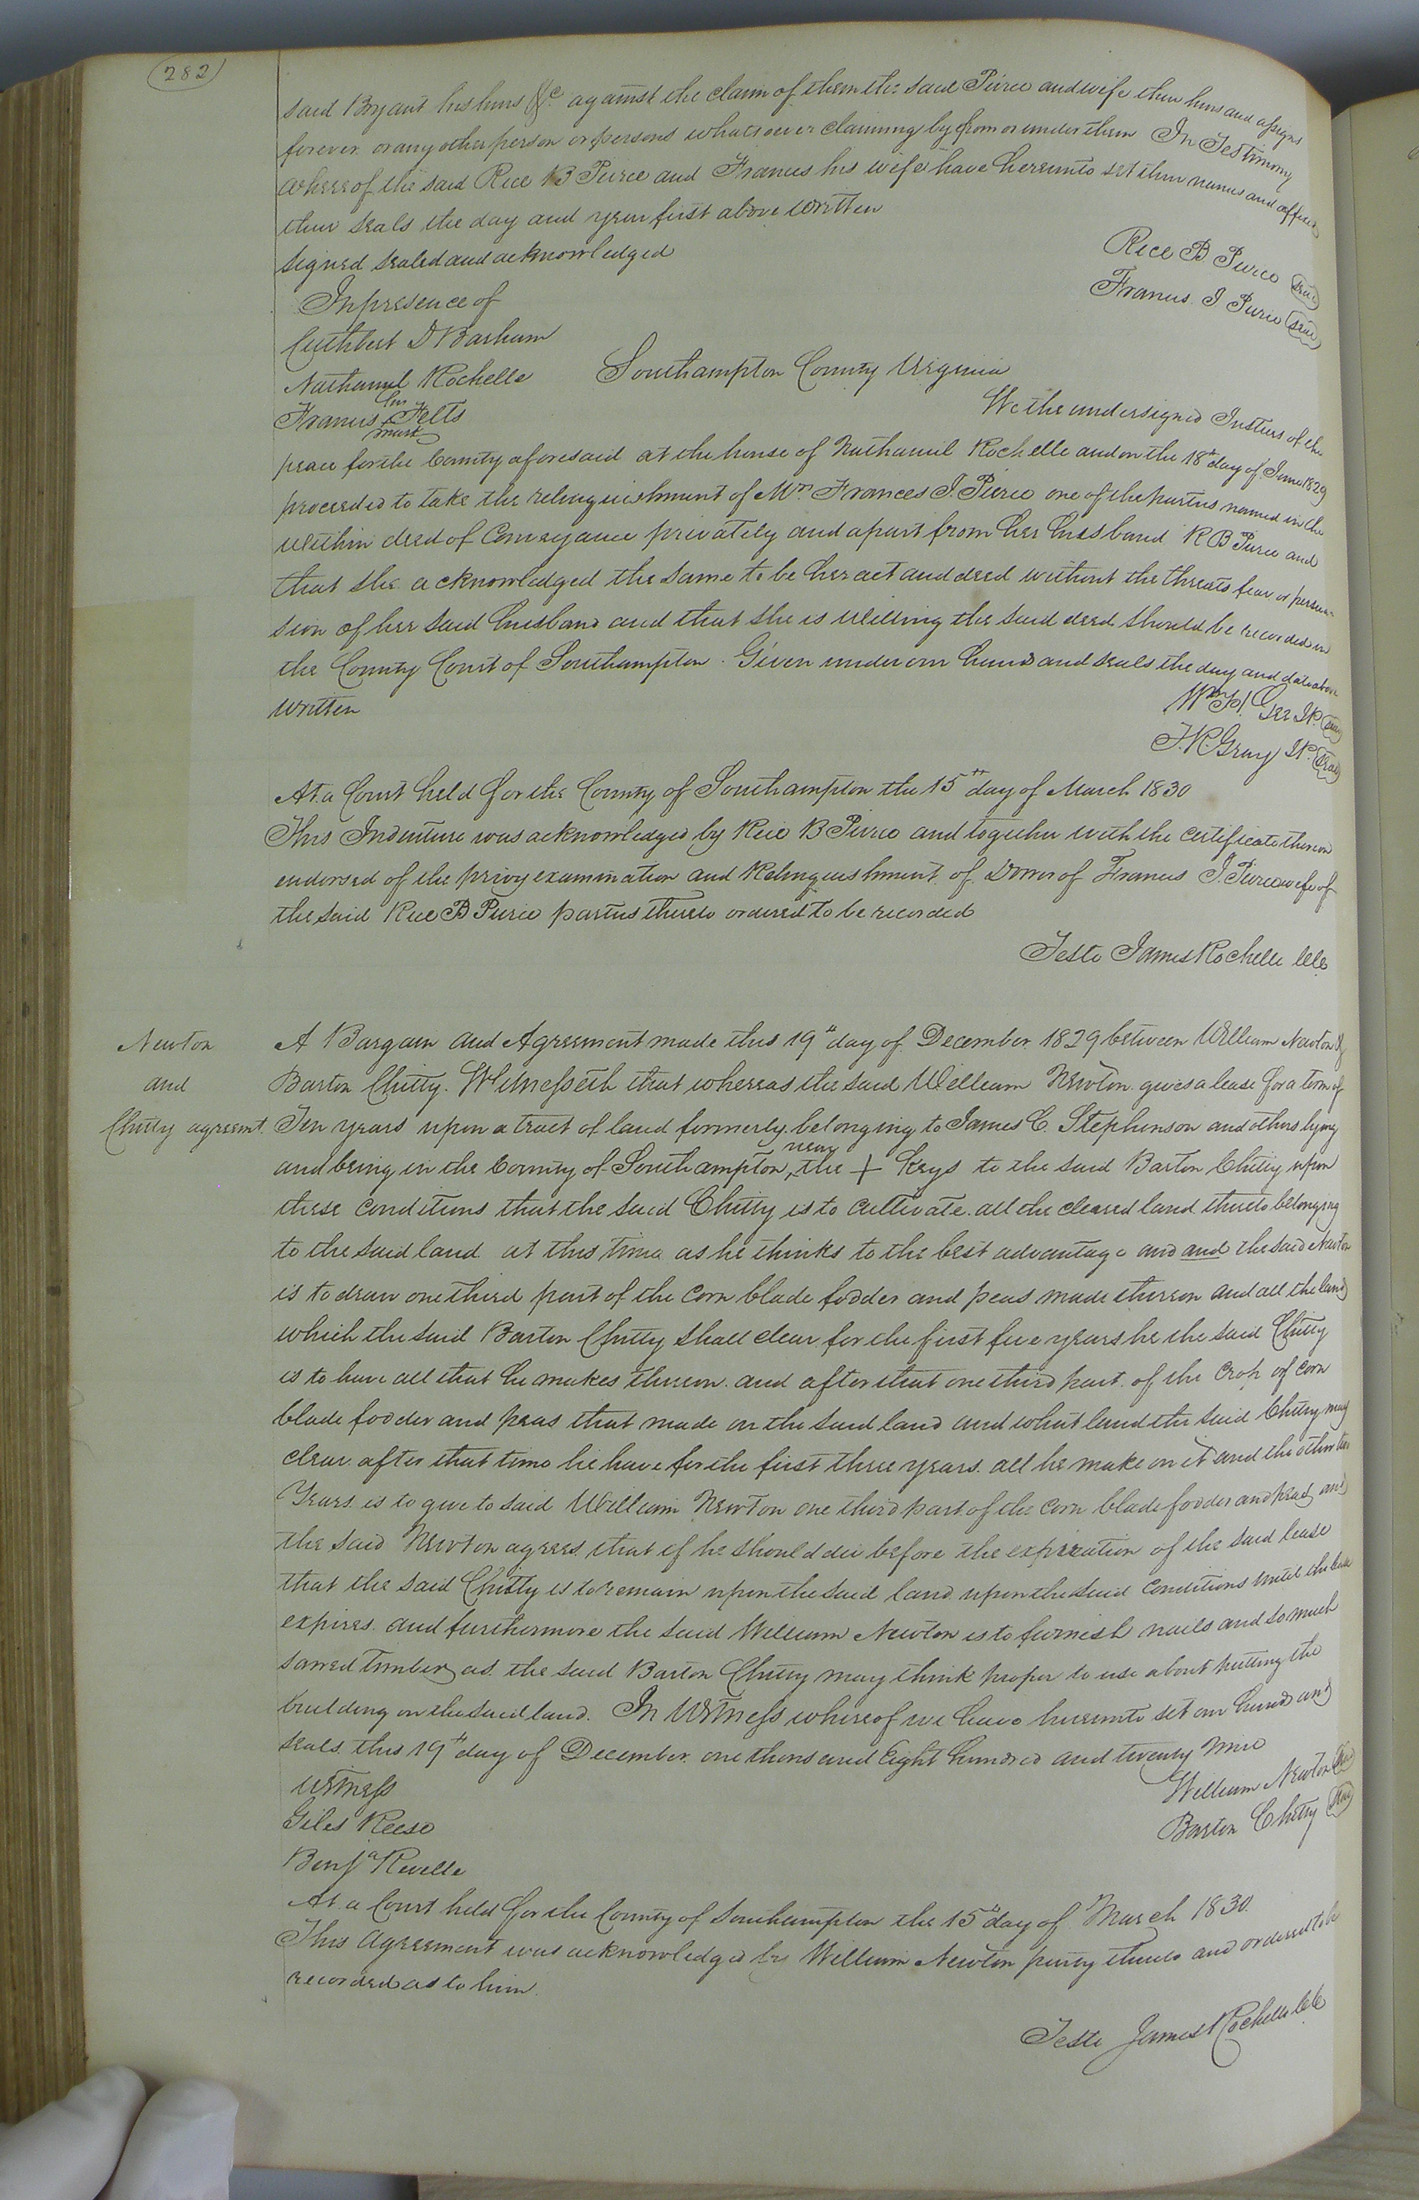 282
said Bryant his heirs &c against the claim of them the said Peirce and wife their heirs and assigns
forever or any other person or persons whatsoever claiming by from or under them In Testimony
whereof the said Rice B Peirce and Frances his wife have hereunto set their names and affixed
their seals the day and year first above written
Signed sealed and acknowledged
Rice B Peirce Seal
In presence of
Frances J Peirce Seal
Cuthbert D Barham
Nathaniel Rochelle Southampton County Virginia
Francis his Felts We the undersigned Justices of the
mark
peace for the County aforesaid at the house of Nathaniel Rochelle and on the 18th day of June 1829
proceeded to take the relinquishment of Mrs Frances J. Peirce one of the parties named in the
within deed of Conveyance privately and apart from her husband R B Peirce and
that she acknowledged the same to be her act and deed without the threats fear or persua-
sion of her said husband and that she is willing the said deed should be recorded in
the County Court of Southampton. Given under our hands and seals the day and date above
written
Wm H. Gee J.P. Seal
J. R. Gray J.P. Seal
At a Court held for the County of Southampton the 15th day of March 1830
This Indenture was acknowledged by Rice B Peirce and together with the certificate thereon
endorsed of the privy examination and Relinquishment of Dower of Frances J. Peirce wife of
the said Rice B Peirce parties thereto ordered to be recorded
Teste James Rochelle Clk
Newton
and
Chitty agreemt.
A Bargain and Agreement made this 19th day of December 1829 between William Newton &
Barton Chitty. Witnesseth that whereas the said William Newton gives a lease for a term of
Ten years upon a tract of land formerly belonging to James C. Stephenson and others lying
and being in the County of Southampton, near the + Keys to the said Barton Chitty upon
these conditions that the said Chitty is to cultivate all the cleared land thereto belonging
to the said land at this time as he thinks to the best advantage and and the said Newton
is to draw one third part of the corn blade fodder and peas made thereon and all the land
which the said Barton Chitty shall clear for the first five years he the said Chitty
is to have all that he makes thereon and after that one third part of the crop of corn
blade fodder and peas that made on the said land and what land the said Chitty may
clear after that time he have for the first three years all he make on it and the other two
Years is to give to said William Newton one third part of the corn blade fodder and peas and
the said Newton agrees that if he should die before the expiration of the said lease
that the said Chitty is to remain upon the said land upon the said conditions until the lease
expires and furthermore the said William Newton is to furnish nails and so much
sawed timber as the said Barton Chitty may think proper to use about putting the
building on the said land. In Witness whereof we have hereunto set our hands and
seals this 19th day of December one thousand Eight hundred and twenty Nine
Witness
William Newton Seal
Giles Reese
Barton Chitty Seal
Benja Revelle
At a Court held for the County of Southampton the 15th day of March 1830.
This Agreement was acknowledged by William Newton party thereto and ordered to be
recorded as to him.
Teste James Rochelle Clk